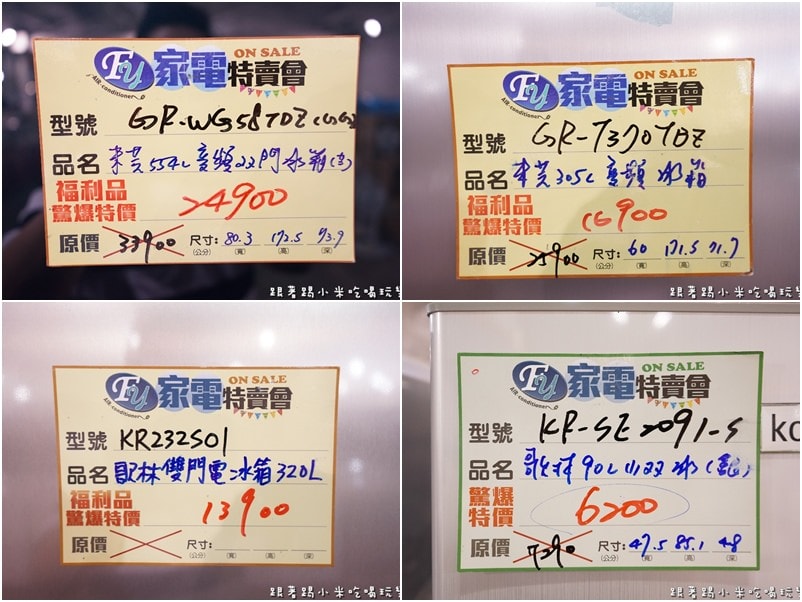 Fu 家電特賣會 ON SALE
AIR conditioner
型號 GR-WG58TDZ(GG)
品名 東芝554L變頻雙門冰箱
福利品
驚爆特價 24900
原價 33900 尺寸: 80.3 172.5 73.9
(公分) (寬) (高) (深)
跟著踢小米吃喝玩樂
Fu 家電特賣會 ON SALE
AIR conditioner
型號 GR-T370TDZ
品名 東芝305L變頻冰箱
福利品
驚爆特價 16900
原價 25900 尺寸: 60 171.5 71.7
(公分) (寬) (高) (深)
跟著踢小米吃喝玩樂
Fu 家電特賣會 ON SALE
AIR conditioner
型號 KR232S01
品名 歌林雙門電冰箱320L
福利品
驚爆特價 13900
原價 尺寸:
(公分) (寬) (高) (深)
跟著踢小米吃喝玩樂
Fu 家電特賣會 ON SALE
AIR conditioner
型號 KR-SE2091-S
品名 歌林90L小雙冰(銀)
驚爆
特價 6200
原價 7290 尺寸: 47.5 85.1 48
(公分) (寬) (高) (深)
跟著踢小米吃喝玩樂